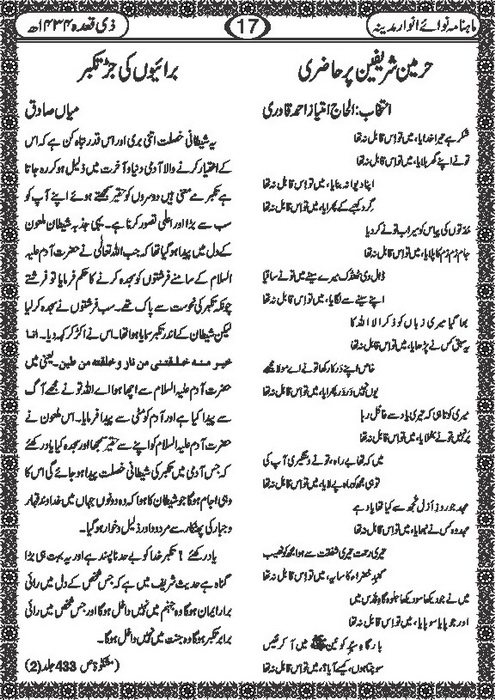 ماہنامہ نوائے انوار مدینہ
17
ذی قعدہ ۱۴۳۴ھ
حرمین شریفین پر حاضری
انتخاب: الحاج امتیاز احمد قادری
شکر ہے تیرا خدایا، میں تو اس قابل نہ تھا
تو نے اپنے گھر بلایا، میں تو اس قابل نہ تھا
اپنا دیوانہ بنایا، میں تو اس قابل نہ تھا
گرد کعبے کے پھرایا، میں تو اس قابل نہ تھا
مدتوں کی پیاس کو سیراب تو نے کر دیا
جام زم زم کا پلایا، میں تو اس قابل نہ تھا
ڈال دی ٹھنڈک میرے سینے میں تو نے ساقیا
اپنے سینے سے لگایا، میں تو اس قابل نہ تھا
بھا گیا میری زباں کو ذکر الا اللہ کا
یہ سبق کس نے پڑھایا، میں تو اس قابل نہ تھا
خاص اپنے در کا رکھا تو نے اے مولا مجھے
یوں نہیں در در پھرایا، میں تو اس قابل نہ تھا
میری کوتاہی کہ تیری یاد سے غافل رہا
پر نہیں تو نے بھلایا، میں تو اس قابل نہ تھا
میں کہ تھا بے راہ، تو نے دستگیری آپ کی
تو ہی مجھ کو راہ پہ لایا، میں تو اس قابل نہ تھا
عہد جو روز ازل تجھ سے کیا تھا یاد ہے
عہد وہ کس نے نبھایا، میں تو اس قابل نہ تھا
تیری رحمت تیری شفقت سے ہوا مجھ کو نصیب
گنبد خضرا کا سایہ، میں تو اس قابل نہ تھا
میں نے جو دیکھا سو دیکھا جلوہ گاہ قدس میں
اور جو پایا سو پایا، میں تو اس قابل نہ تھا
بارگاہ سید کونین ﷺ میں آ کر نفیس
سوچتا ہوں، کیسے آیا؟، میں تو اس قابل نہ تھا
برائیوں کی جڑ تکبر
میاں صادق
یہ شیطانی خصلت اتنی بری اور اس قدر تباہ کن ہے کہ اس
کے اختیار کرنے والا آدمی دنیا و آخرت میں ذلیل ہو کر رہ جاتا
ہے تکبر کے معنی ہیں دوسروں کو حقیر سمجھتے ہوئے اپنے آپ کو
سب سے بڑا اور اعلی تصور کرنا ہے۔ یہی جذبہ شیطان ملعون
کے دل میں پیدا ہو گیا تھا کہ جب اللہ تعالی نے حضرت آدم علیہ
السلام کے سامنے فرشتوں کو سجدہ کرنے کا حکم فرمایا تو فرشتے
چونکہ تکبر کی نحوست سے پاک تھے۔ سب فرشتوں نے سجدہ کر لیا
لیکن شیطان کے اندر تکبر سمایا ہوا تھا۔ اس نے اکڑ کر کہہ دیا۔ انا
خیر منہ خلقتنی من نار و خلقتہ من طین۔ یعنی میں
حضرت آدم علیہ السلام سے اچھا ہوں اے اللہ تو نے مجھے آگ
سے پیدا کیا ہے اور آدم کو مٹی سے پیدا فرمایا۔ اس ملعون نے
حضرت آدم علیہ السلام کو اپنے سے حقیر سمجھا اور سجدہ کیا یاد رکھئے
کہ جس آدمی میں تکبر کی شیطانی خصلت پیدا ہو جائے گی اس کا
وہی انجام ہو گا جو شیطان کا ہوا کہ وہ دونوں جہاں میں خداوند قہار
و جبار کی پھٹکار سے مردود اور ذلیل و خوار ہو گیا۔
یاد رکھئے! تکبر خدا کو بے حد ناپسند ہے اور یہ بہت ہی بڑا
گناہ ہے حدیث شریف میں ہے کہ جس شخص کے دل میں رائی
برابر ایمان ہو گا وہ جہنم میں نہیں داخل ہو گا اور جس شخص میں رائی
برابر تکبر ہو گا وہ جنت میں نہیں داخل ہو گا۔
(مشکوٰۃ ص 433 جلد (2))